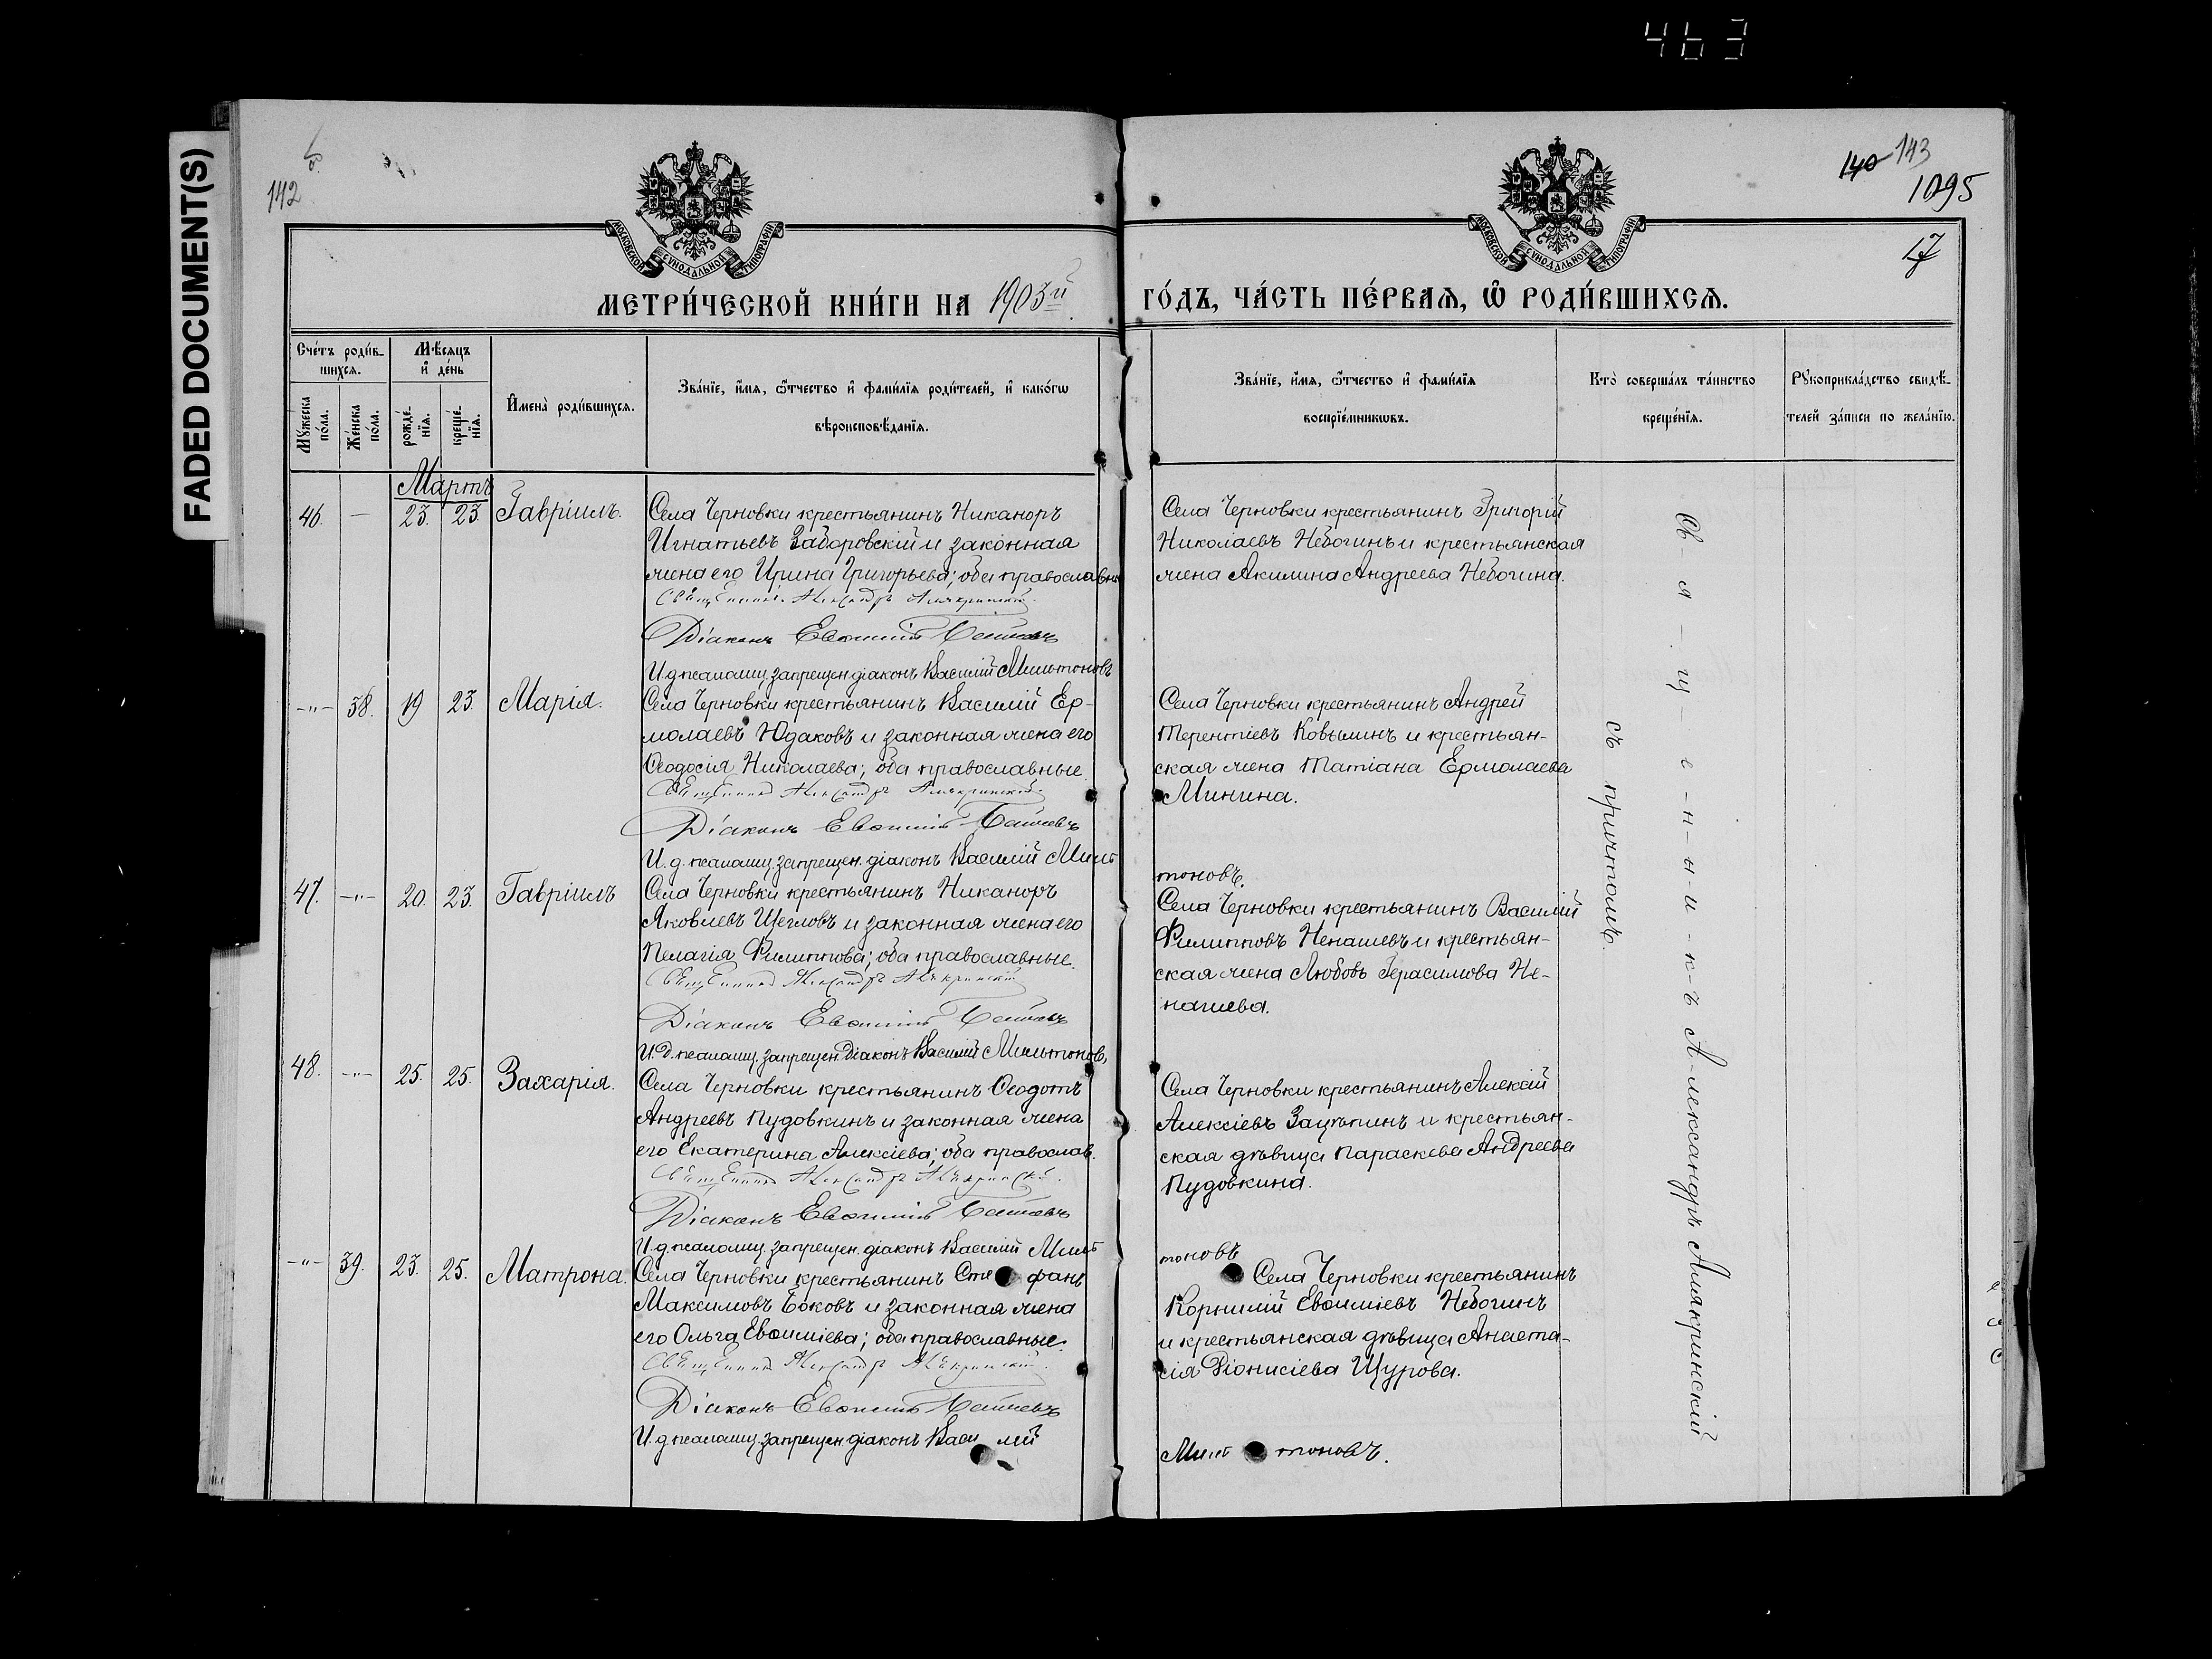 463
FADED DOCUMENT(S)
142
140 143
1095
17
МОСКОВСКОЙ СѴНОДАЛЬНОЙ ТИПОГРАФІИ
МОСКОВСКОЙ СѴНОДАЛЬНОЙ ТИПОГРАФІИ
МЕТРИ́ЧЕСКОЙ КНИ́ГИ НА 1903й ГО́ДЪ, ЧА́СТЬ ПЕ́РВАЯ, Ѽ РОДИ́ВШИХСЯ.
Сче́тъ роди́в-
шихся.
Мѣ́сяцъ
и҆ де́нь
Мꙋ́жеска
по́ла.
Же́нска
по́ла.
рожде́-
нїя.
креще́-
нїя.
И҆мена̀ роди́вшихся.
Зва́нїе, и҆́мя, ѻ҆́тчество и҆ фами́лїя роди́телей, и҆ како́гѡ
вѣроисповѣ́данїя.
Зва́нїе, и҆́мя, ѻ҆́тчество и҆ фами́лїя
воспрїе́мникѡвъ.
Кто̀ соверша́лъ та́инство
креще́нїя.
Рꙋкоприкла́дство свидѣ́-
телей за́писи по жела́нїю.
Мартъ
46. — 23. 23. Гавріилъ.
Села Черновки крестьянинъ Никаноръ
Игнатьевъ Заборовскій и законная
жена его Ирина Григорьева; оба православн
Священникъ Александръ Алякринскій.
Діаконъ Евѳимій
И.д. псаломщ. запрещен. діаконъ Василій Мильтоновъ
Села Черновки крестьянинъ Григорій
Николаевъ Небогинъ и крестьянская
жена Акилина Андреева Небогина.
-"- 38. 19 23. Марія.
Села Черновки крестьянинъ Василій Ер-
молаевъ Юдаковъ и законная жена его
Ѳеодосія Николаева; оба православные.
Священникъ Александръ Алякринскій.
Діаконъ Евѳимій
И.д. псаломщ. запрещен. діаконъ Василій Миль
тоновъ.
Села Черновки крестьянинъ Андрей
Терентіевъ Ковылинъ и крестьян-
ская жена Татіана Ермолаева
Минина.
47. -"- 20. 23. Гавріилъ
Села Черновки крестьянинъ Никаноръ
Яковлевъ Щегловъ и законная жена его
Пелагія Филиппова; оба православные.
Священникъ Александръ Алякринскій
Діаконъ Евѳимій
И.д. псаломщ. запрещен. діаконъ Василій Мильтоновъ
Села Черновки крестьянинъ Василій
Филипповъ Ненашевъ и крестьян-
ская жена Любовь Герасимова Не-
нашева.
48. -"- 25. 25. Захарія.
Села Черновки крестьянинъ Ѳеодотъ
Андреевъ Пудовкинъ и законная жена
его Екатерина Алексіева; оба православ.
Священникъ Александръ Алякринскій.
Діаконъ Евѳимій
И.д. псаломщ. запрещен. діаконъ Василій Миль
тоновъ
Села Черновки крестьянинъ Алексій
Алексіевъ Зацѣпинъ и крестьян-
ская дѣвица Параскева Андреева
Пудовкина.
-"- 39. 23. 25. Матрона.
Села Черновки крестьянинъ Стефанъ
Максимовъ Боковъ и законная жена
его Ольга Евѳиміева; оба православные.
Священникъ Александръ Алякринскій.
Діаконъ Евѳимій
И.д. псаломщ. запрещен. діаконъ Василій
Мильтоновъ.
Села Черновки крестьянинъ
Корнилій Евѳиміевъ Небогинъ
и крестьянская дѣвица Анаста-
сія Діонисіева Щурова.
Св-я-щ-е-н-н-и-к-ъ А-лександръ Алякринскій
съ причтомъ.